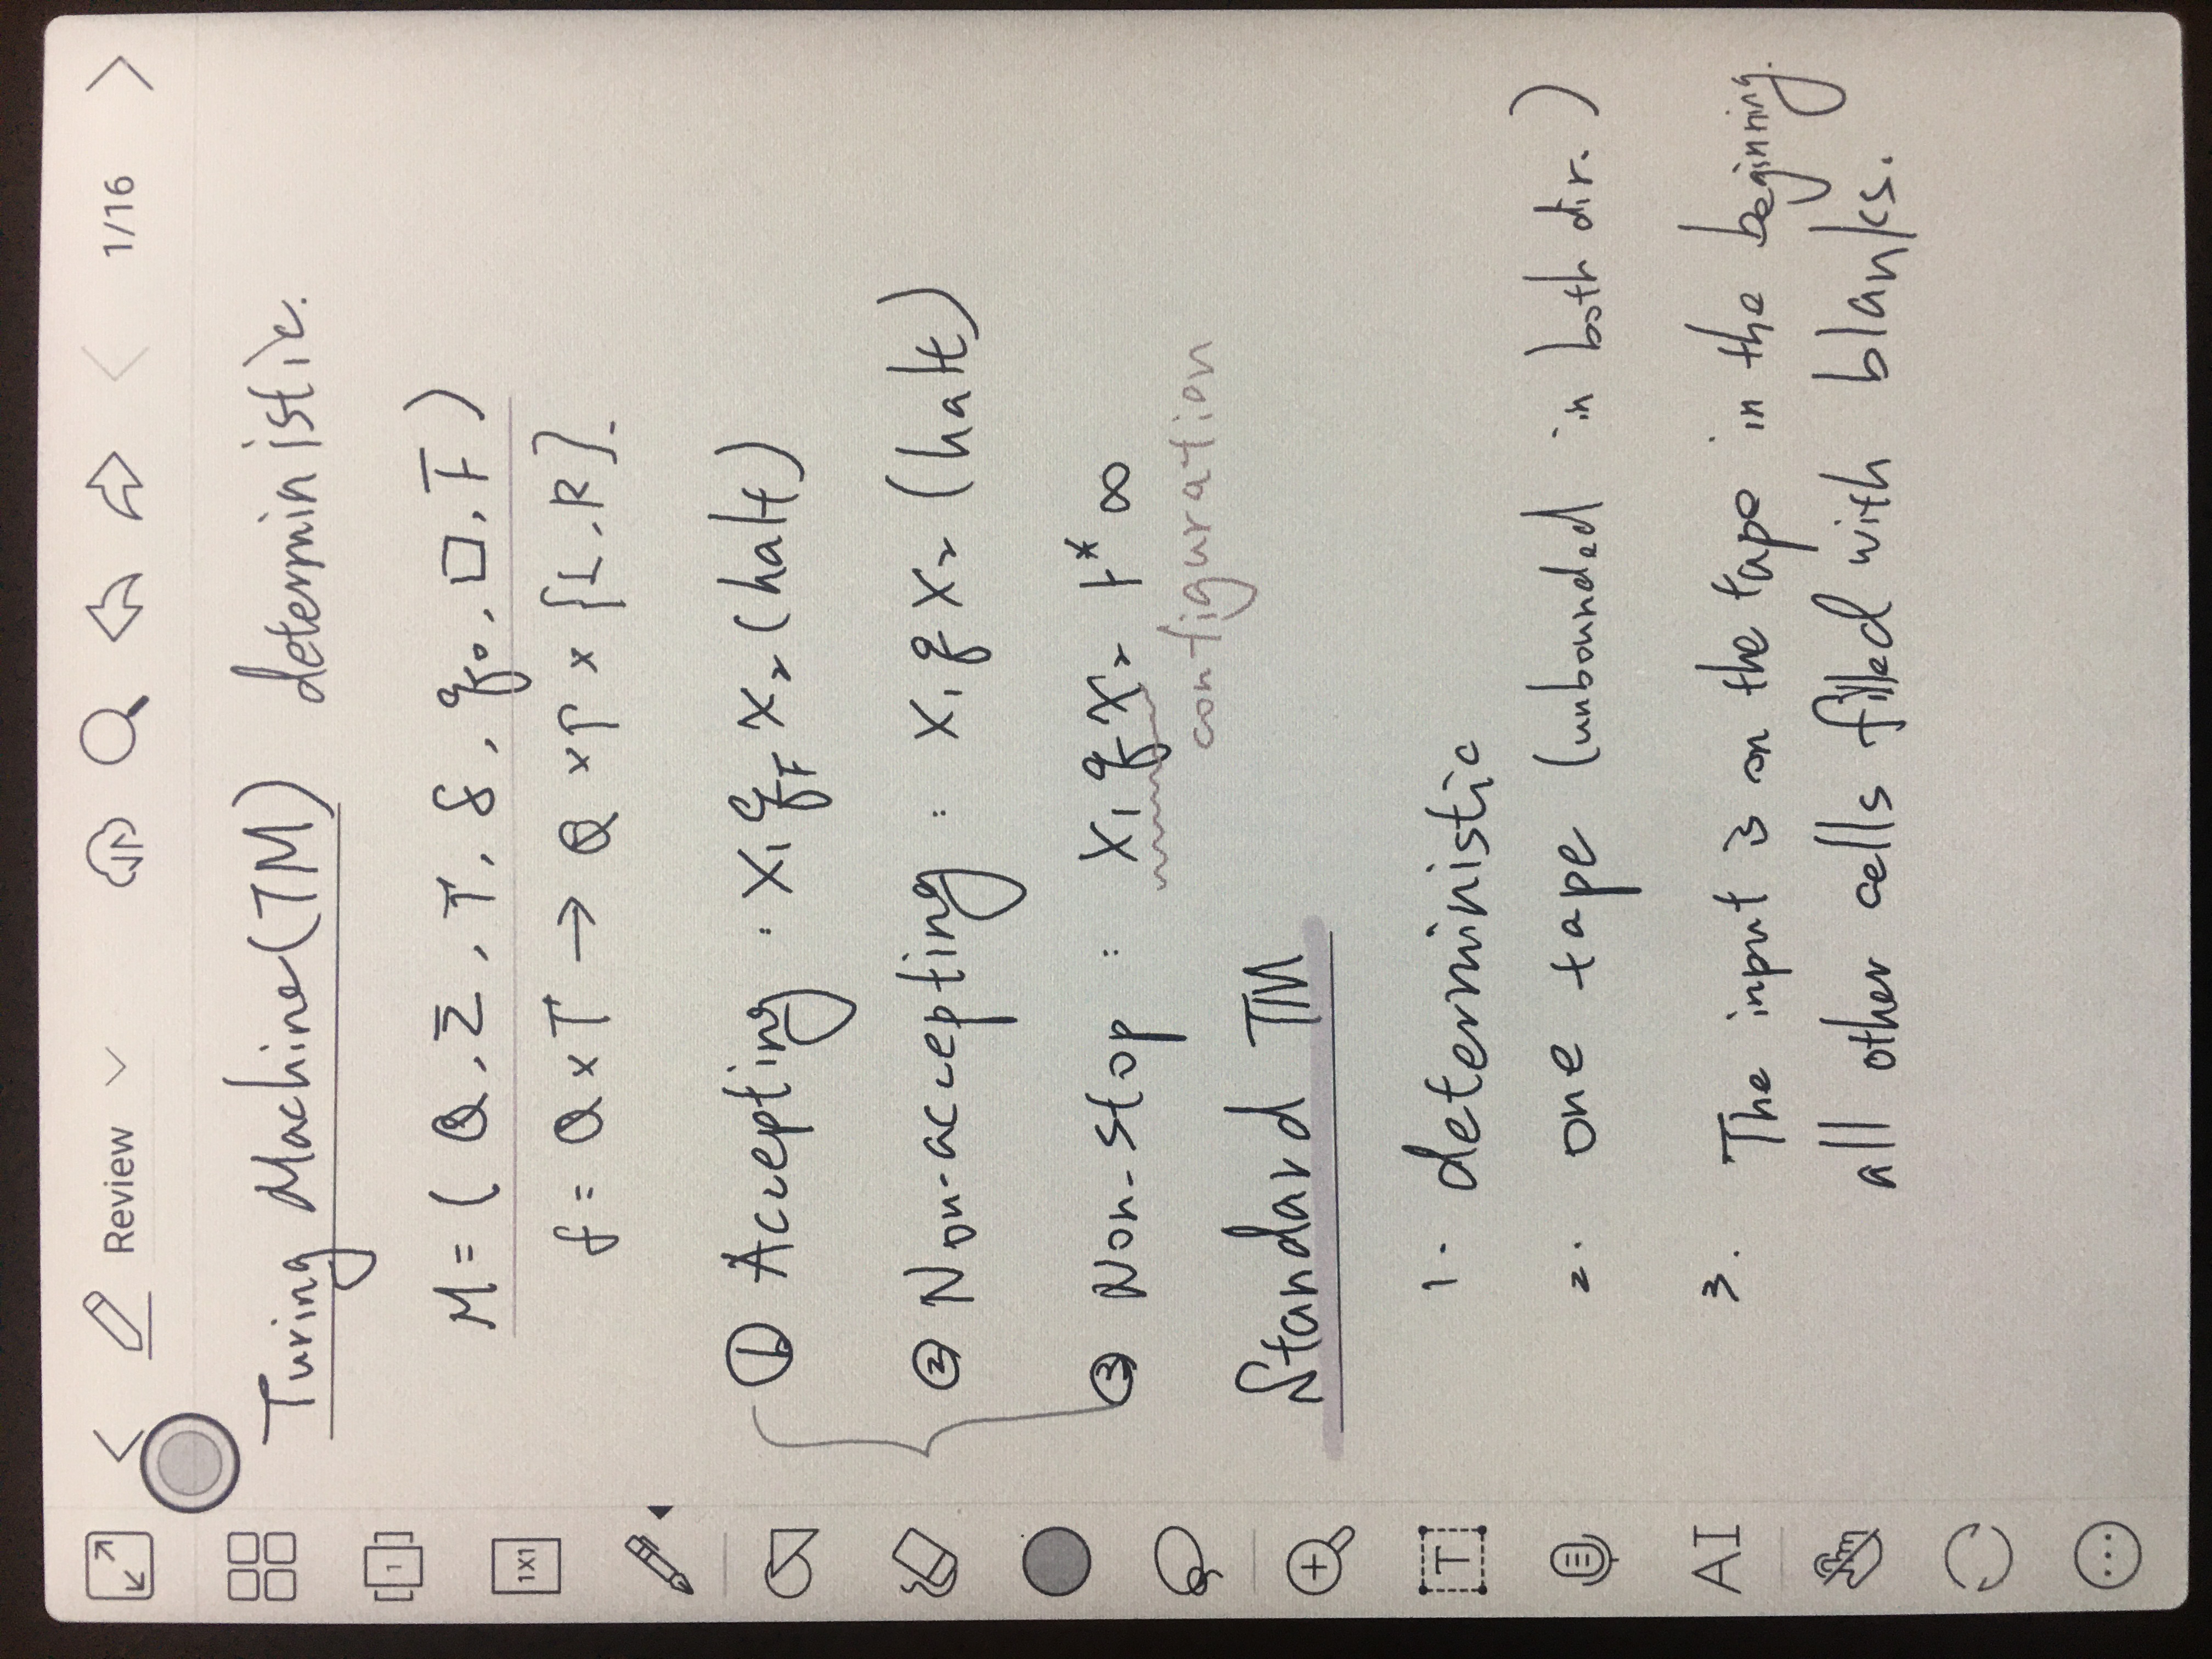 Review
1/16
Turing Machine (TM) deterministic.
M = ( Q, Σ, Γ, δ, q₀, □, F )
δ = Q × Γ → Q × Γ × {L, R}.
① Accepting : X₁ q_F X₂ (halt)
② Non-accepting : X₁ q X₂ (halt)
③ Non-stop : X₁ q X₂ ⊢* ∞
configuration
Standard TM
1. deterministic
2. one tape (unbounded in both dir.)
3. The input is on the tape in the beginning.
all other cells filled with blanks.
1
1X1
T
AI